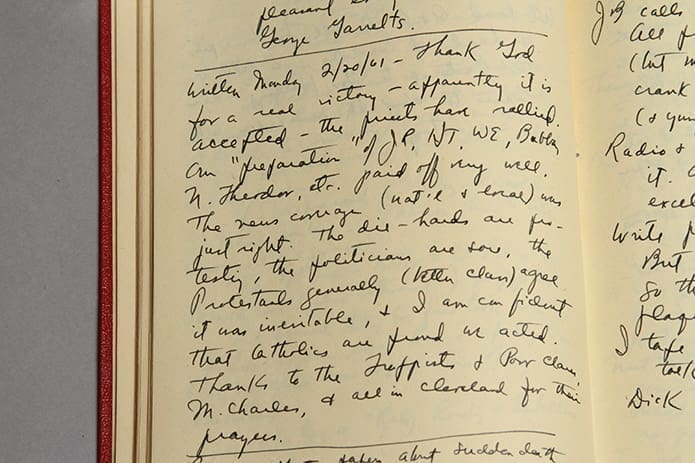 pleasant
George Garrelts.
Written Monday 2/20/61 - Thank God
for a real victory - apparently it is
accepted - the priests have rallied.
Our "preparation" of JR, NT, WE, Bobby
N. Theodor, etc. paid off very well.
The news coverage (nat'l & local) was
just right. The die-hards are pro-
testing, the politicians are sore, the
Protestants generally (better class) agree
it was inevitable, & I am confident
that Catholics are proud we acted.
Thanks to the Trappists & Poor Clares,
M. Charles, & all in Cleveland for their
prayers.
taken about sudden death
calls
All
(but
crank
(&
Radio &
it.
excel
Write
But
So th
plaq
I tape
Dick